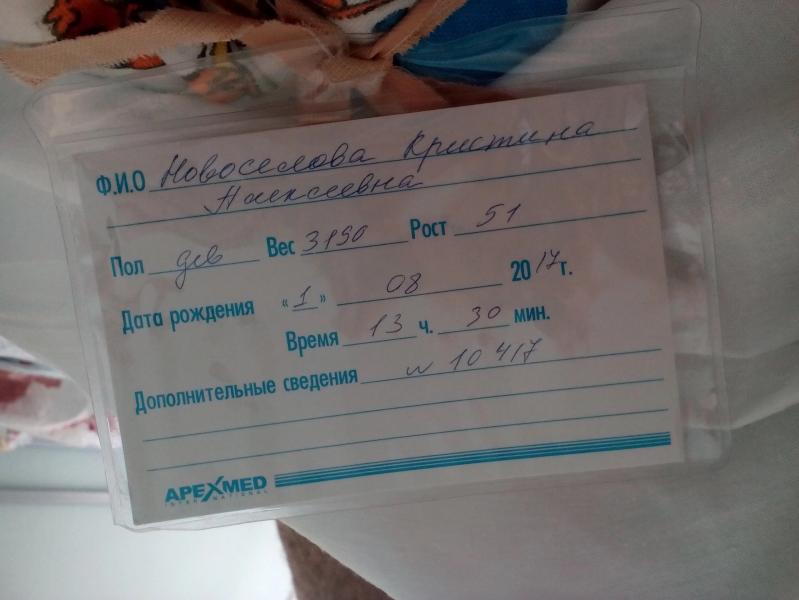 Ф.И.О Новоселова Кристина
Алексеевна
Пол дев Вес 3190 Рост 51
Дата рождения «1» 08 2017 г.
Время 13 ч. 30 мин.
Дополнительные сведения № 10417
APEXMED
INTERNATIONAL